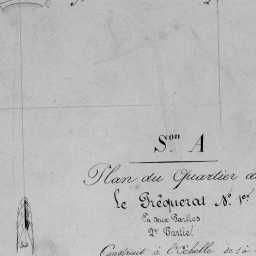 Son A
Plan du Quartier d
le Préquerat Nº 1er
En deux Parties
2e Partie
Construit à l'Echelle de 1 à